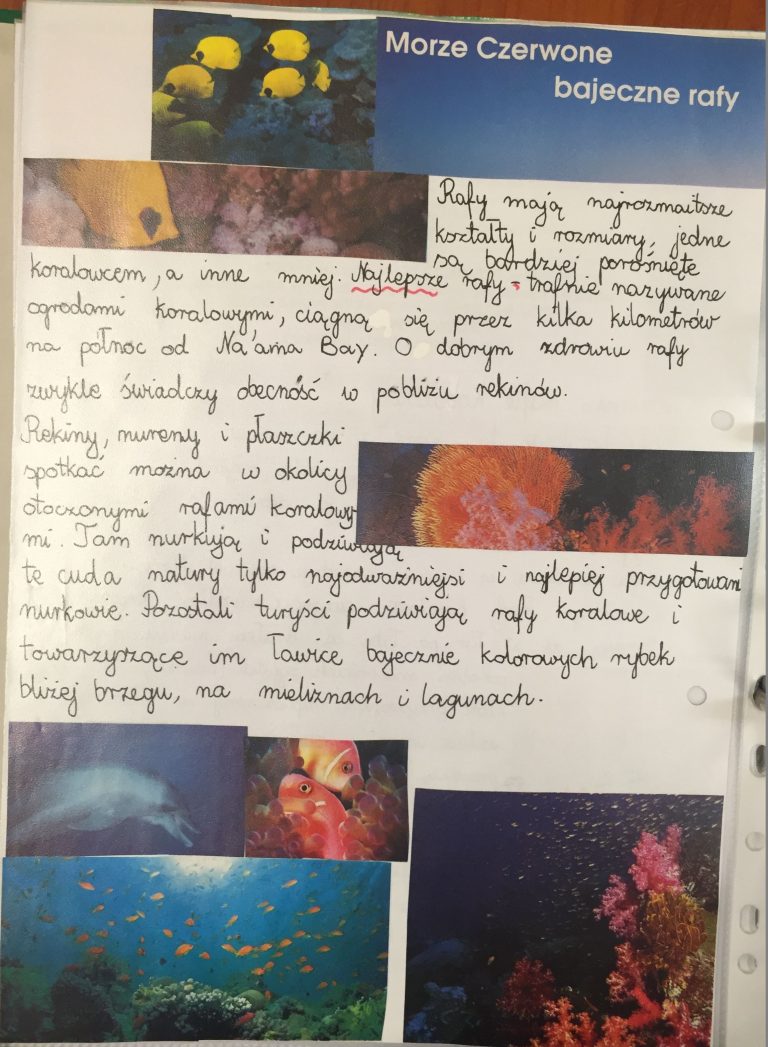 Morze Czerwone
bajeczne rafy
Rafy mają najrozmaitsze
kształty i rozmiary, jedne
są bardziej porośnięte
koralowcem, a inne mniej. Najlepsze rafy - trafnie nazywane
ogrodami koralowymi, ciągną się przez kilka kilometrów
na północ od Na'ama Bay. O dobrym zdrowiu rafy
zwykle świadczy obecność w pobliżu rekinów.
Rekiny, mureny i płaszczki
spotkać można w okolicy
otoczonymi rafami koralowy
mi. Tam nurkują i podziwiają
te cuda natury tylko najodważniejsi i najlepiej przygotowani
nurkowie. Pozostali turyści podziwiają rafy koralowe i
towarzyszące im ławice bajecznie kolorowych rybek
bliżej brzegu, na mieliznach i lagunach.